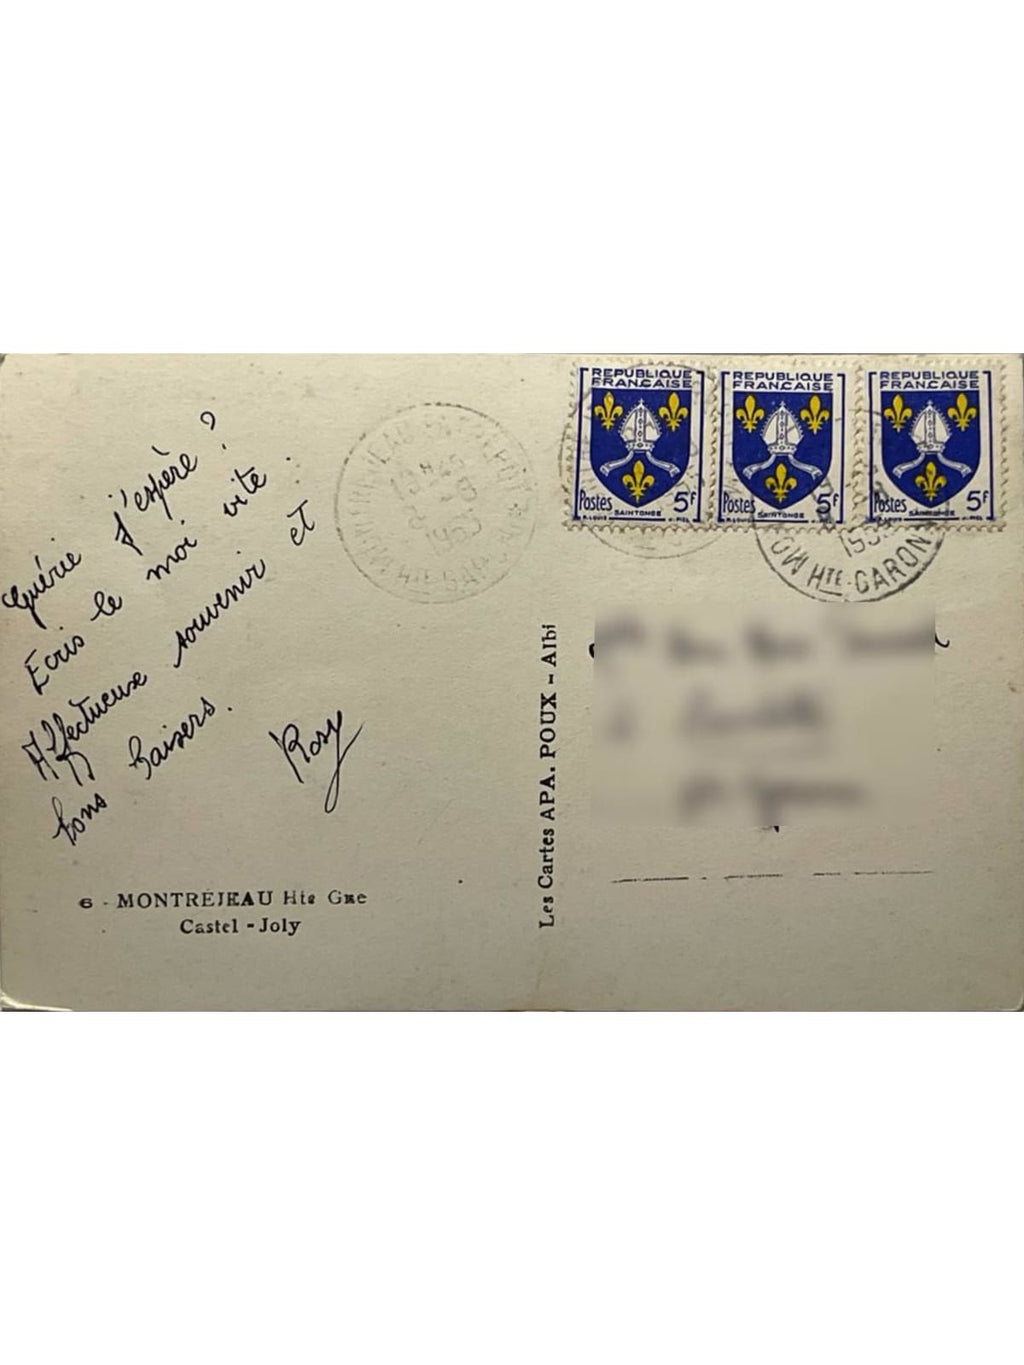 Guérie j'espère ?
Ecris le moi vite .
Affectueux souvenir et
bons baisers.
Rosy
6 - MONTRÉJEAU Hte Gne
Castel - Joly
Les Cartes APA. POUX - Albi
REPUBLIQUE
FRANÇAISE
Postes 5F
SAINTONGE
REPUBLIQUE
FRANÇAISE
Postes 5F
SAINTONGE
REPUBLIQUE
FRANÇAISE
Postes 5F
SAINTONGE
HTE-GARON